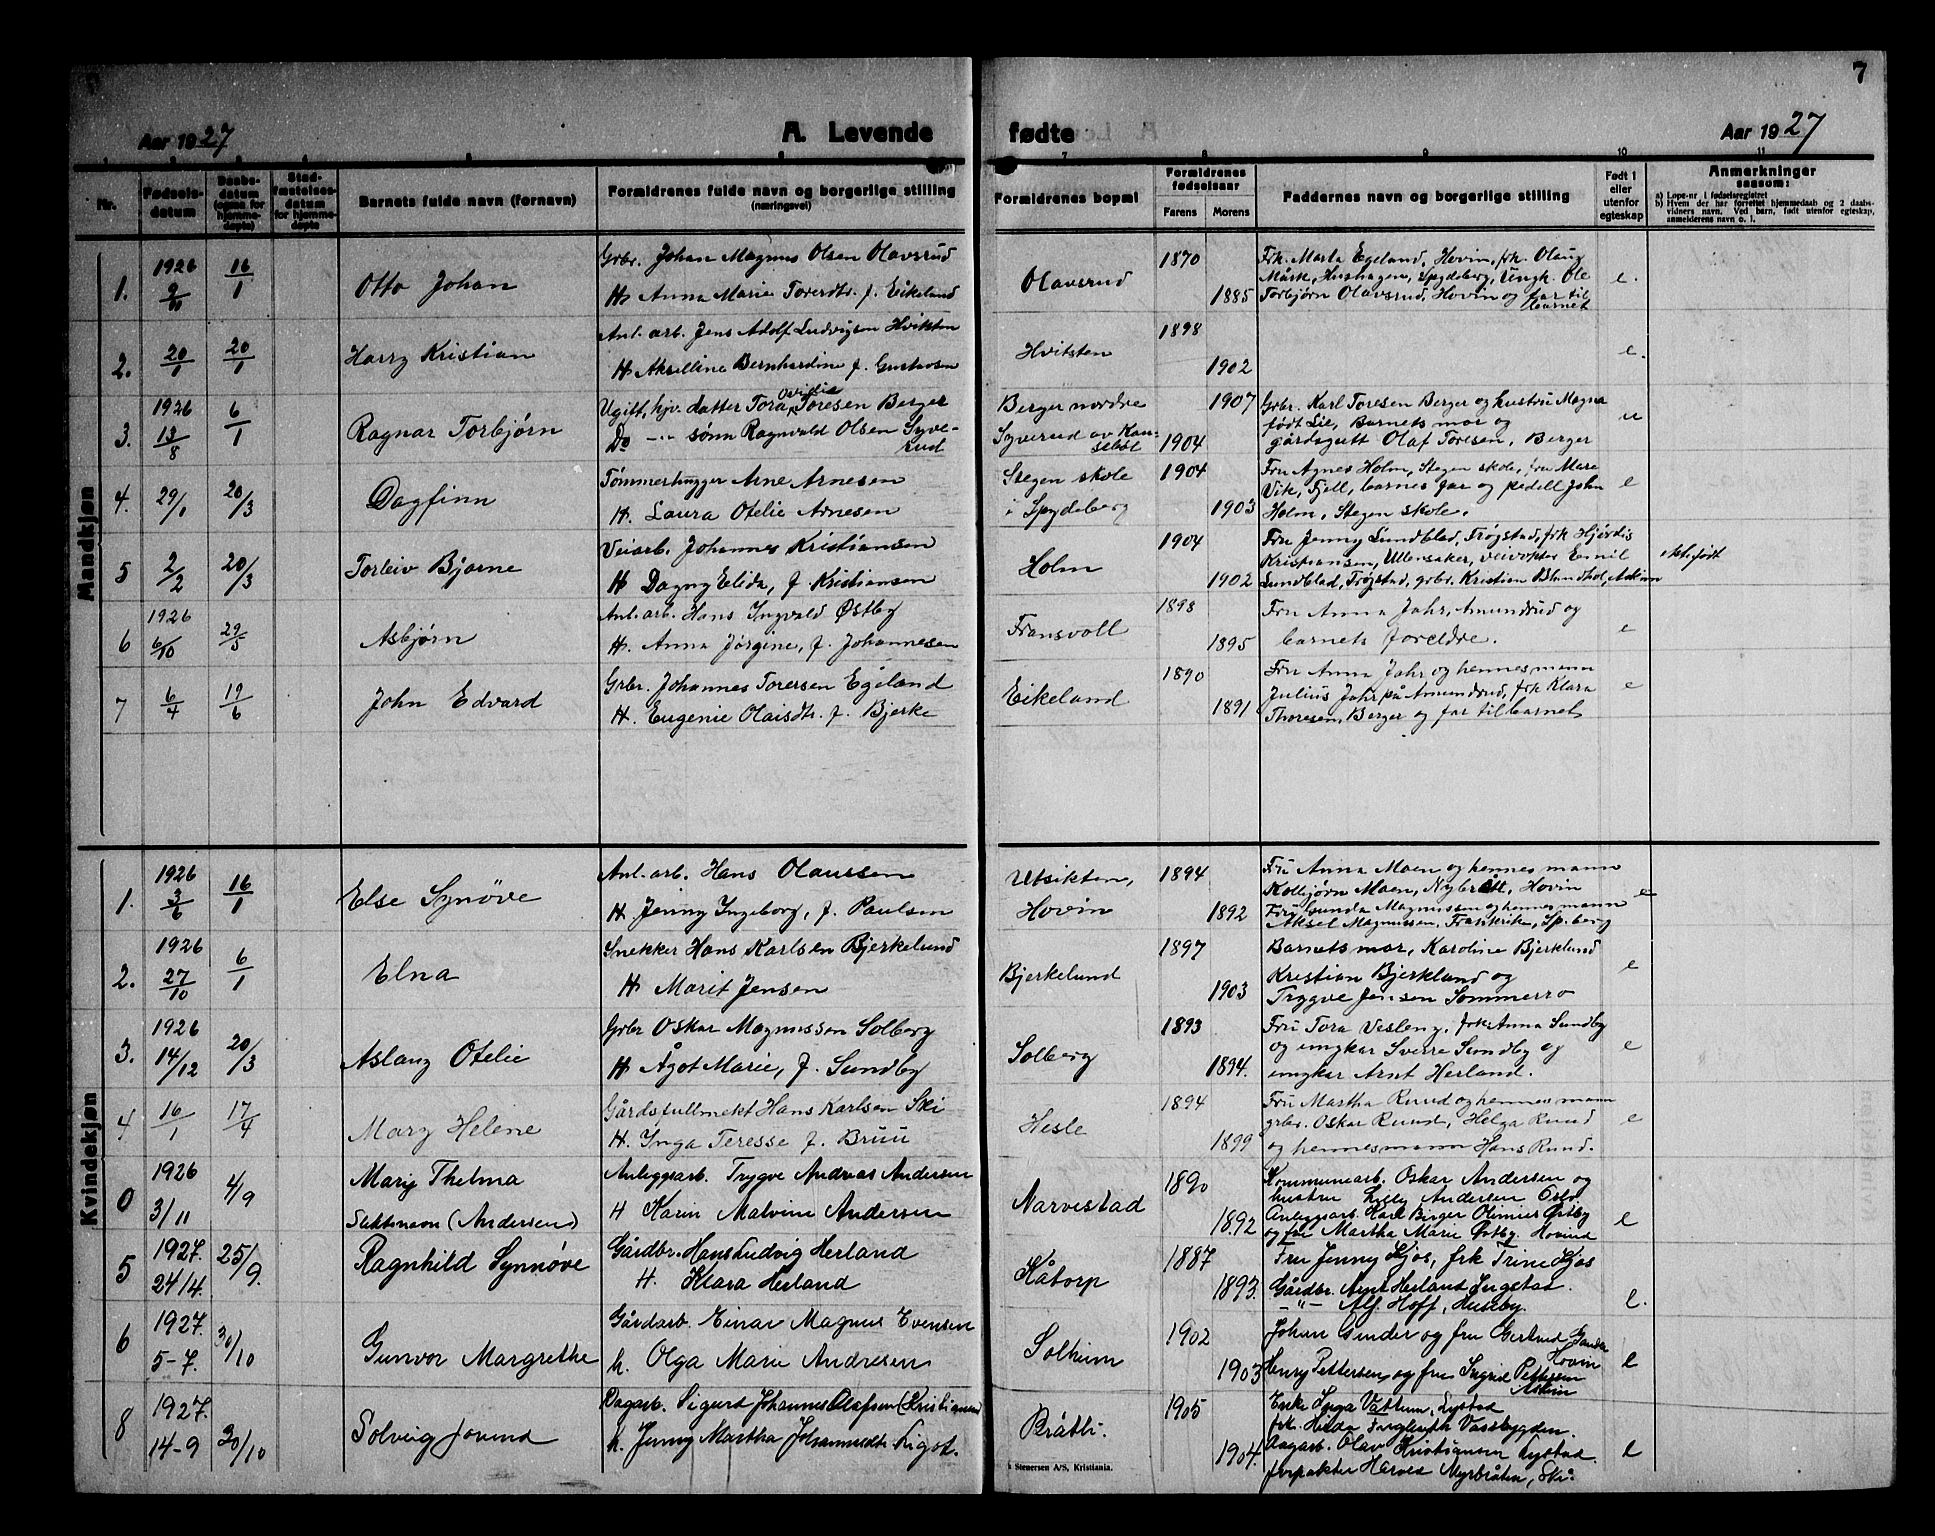 7
Aar 1927
A. Levende
fødte
Aar 1927
Nr.
Fødsels-
datum
Daabs-
datum
(ogsaa for
hjemme-
døpte)
Stad-
fæstelses-
datum
for hjemme-
døpte
Barnets fulde navn (fornavn)
Formldrenes fulde navn og borgerlige stilling
(næringsvei)
7
8
9
10
11
Formldrenes bopæl
Formldrenes
fødselsaar
Farens
Morens
Faddernes navn og borgerlige stilling
Født i
eller
utenfor
egteskap
Anmerkninger
saasom:
a) Løpe-nr i fødselsregistret
b) Hvem der har forrettet hjemmedaab og 2 daabs-
vidners navn. Ved barn, født utenfor egteskap,
anmelderens navn o. l.
Mandkjøn
1. 1926 9/10 16/1 Otto Johan
Grbr. Johan Magnus Olsen Olavsrud
H. Anna Marie Toresdtr. f. Eikeland
Olavsrud 1870 1885
Frk. Marta Egeland, Hovin, frk Olaug
Mårk, Hushagen, Spydeberg, Ungk. Ole
Torbjørn Olavsrud, Hovin og far til
barnet
e.
2. 20/1 20/1 Harry Kristian
Anl. arb. Jens Adolf Ludvigsen Hvitsten
H. Akselline Bernhardine f. Gustavsen
Hvitsten 1898 1902 e.
3. 1926 13/8 6/1 Ragnar Torbjørn
Ugift, hjv. datter Tora Ovidia Toresen Berger
Do -"- sønn Ragnvald Olsen Syve-
rud
Berger nordre 1907
Syverud av Kan-
selbøl 1904
Grbr. Karl Toresen Berger og hustru Magna
født Lie, Barnets mor og
gårdsgutt Olaf Toresen, Berger
u
4. 29/1 20/3 Dagfinn
Tømmerhugger Arne Arnesen
H. Laura Otelie Arnesen
Stegen skole
i Spydeberg 1904 1903
Fru Agnes Holm, Stegen skole, fru Mare
Vik, Fjell, barnes far og pedell John
Holm, Stegen skole.
e
5 2/2 20/3 Torleiv Bjarne
Veiarb. Johannes Kristiansen
H Dagny Elida, f. Kristiansen
Holm 1904 1902
Fru Jenny Lundblad, Trøgstad, frk Hjørdis
Kristiansen, Ullensaker, veivokter Emil
Lundblad, Trøgstad, grbr. Kristian Blundhol, Askim
6 1926 6/10 29/5 Asbjørn
Anl. arb. Hans Ingvald Østby
H. Anna Jørgine, f. Johannesen
Fransvoll 1898 1895
Fru Anna Jahr, Amundrud og
barnets foreldre.
e
7 6/4 19/6 John Edvard
Grbr. Johannes Toresen Egeland
H. Eugenie Olaisdtr. f. Bjerke
Eikeland 1890 1891
Fru Anna Jahr og hennes mann
Julius Jahr på Amundrud, frk Klara
Thoresen, Berger og far til barnet
e
Kvindekjøn
1. 1926 3/6 16/1 Else Synøve
Anl. arb. Hans Olaussen
H. Jenny Ingeborg, f. Paulsen
Utsikten,
Hovin 1894 1892
Fru Anna Moen og hennes mann
Kolbjørn Moen, Nybrått, Hovin
Fru Gunda Magnussen og hennes mann
Aksel Magnussen, Frankrike, Sp.berg
e
2. 1926 27/10 6/1 Elna
Snekker Hans Karlsen Bjerkelund
H. Marit Jensen
Bjerkelund 1897 1903
Barnets mor, Karoline Bjerklund
Kristian Bjerkland og
Trygve Jensen Sommerro
e
3. 1926 14/12 20/3 Aslaug Otelie
Grbr Oskar Magnussen Solberg
H. Ågot Marie, f. Sundby
Solberg 1893 1894.
Fru Tora Vesleng, frk Anna Sundby
og ungkar Sverre Sundby og
ungkar Arnt Herland.
e
4. 16/1 17/4 Mary Helene
Gårdsfullmekt Hans Karlsen Ski
H. Inga Teresse f. Bruu
Hesle 1894 1899
Fru Martha Ruud og hennes mann
grbr. Oskar Ruud, Helga Ruud
og hennes mann Hans Ruud.
e
0 1926 3/11 4/9 Mary Thelma
Slektsnavn (Andersen)
Anleggsarb. Trygve Andreas Andersen
H Karin Malvine Andersen
Narvestad 1890 1892
Kommunearb. Oskar Andersen og
hustru Lilly Andersen Oslo.
Anleggsarb. Karl Birger Olinius Østby
og fru Martha Marie Østby. Hovind
e
5 1927. 24/4. 25/9. Ragnhild Synnøve
Gårdbr. Hans Ludvig Herland
H. Klara Herland
Kåtorp 1887 1893.
Fru Jenny Kjos, frk Trine Kjos
Gårdbr. Arnt Herland Ingstad.
-"- Alf Hoff, Huseby.
e.
6 1927. 5-7. 30/10 Gunvor Margrethe
Gårdarb. Einar Magnus Evensen
h. Olga Marie Andresen
Solheim 1902 1903
Johan Gunder og fru Gertrud Gunder
Hovin
Henry Pettersen og fru Ingrid Pettersen
Askim
e
8 1927. 14-9 30/10 Solveig Jorund
Dagarb. Sigurd Johannes Olafsen (Kristiansen)
h. Jenny Martha Johannesdtr Ligot.
Bråtli. 1905 1904.
Enke Inga Vattum, Lystad
frk. Hilda Vassbygden.
Dagarb. Olav Kristiansen Lystad.
forpakter Myrbråten, Ski.
e
Stenersen A/S, Kristiania.